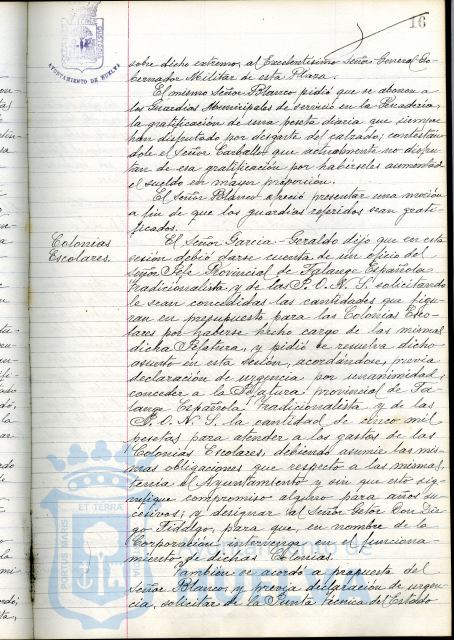 16
AYUNTAMIENTO DE HUELVA
sobre dicho extremo, al Excelentísimo Señor General Go-
bernador Militar de esta Plaza.
El mismo Señor Blanco pidió que se abonen a
los Guardias Municipales de servicio en la
la gratificación de una peseta diaria que siempre
han disfrutado por desgaste del calzado; contestán-
dole el Señor Carballo que actualmente no disfru-
tan de esa gratificación por habérseles aumentado
el sueldo en mayor proporción.
El Señor Blanco ofreció presentar una moción
a fin de que los guardias referidos sean grati-
ficados.
Colonias
Escolares.
El Señor García-Geraldo dijo que en esta
sesión debió darse cuenta de un oficio del
Señor Jefe Provincial de Falange Española
Tradicionalista y de las J. O. N. S. solicitando
le sean concedidas las cantidades que figu-
ran en presupuesto para las Colonias Esco-
lares por haberse hecho cargo de las mismas
dicha Jefatura, y pidió se resuelva dicho
asunto en esta sesión, acordándose, previa
declaración de urgencia por unanimidad,
conceder a la Jefatura provincial de Fa-
lange Española Tradicionalista y de las
J. O. N. S. la cantidad de cinco mil
pesetas para atender a los gastos de las
Colonias Escolares, debiendo asumir las mis-
mas obligaciones que respecto a las mismas,
tenía el Ayuntamiento y sin que esto sig-
nifique compromiso alguno para años su-
cesivos; y designar al Señor Gestor Don Die-
go Fidalgo, para que, en nombre de la
Corporación intervenga en el funciona-
miento de dichas Colonias.
También se acordó a propuesta del
Señor Blanco, y previa declaración de urgen-
cia, solicitar de la Junta Técnica del Estado
PORTUS MARIS ET TERRAE